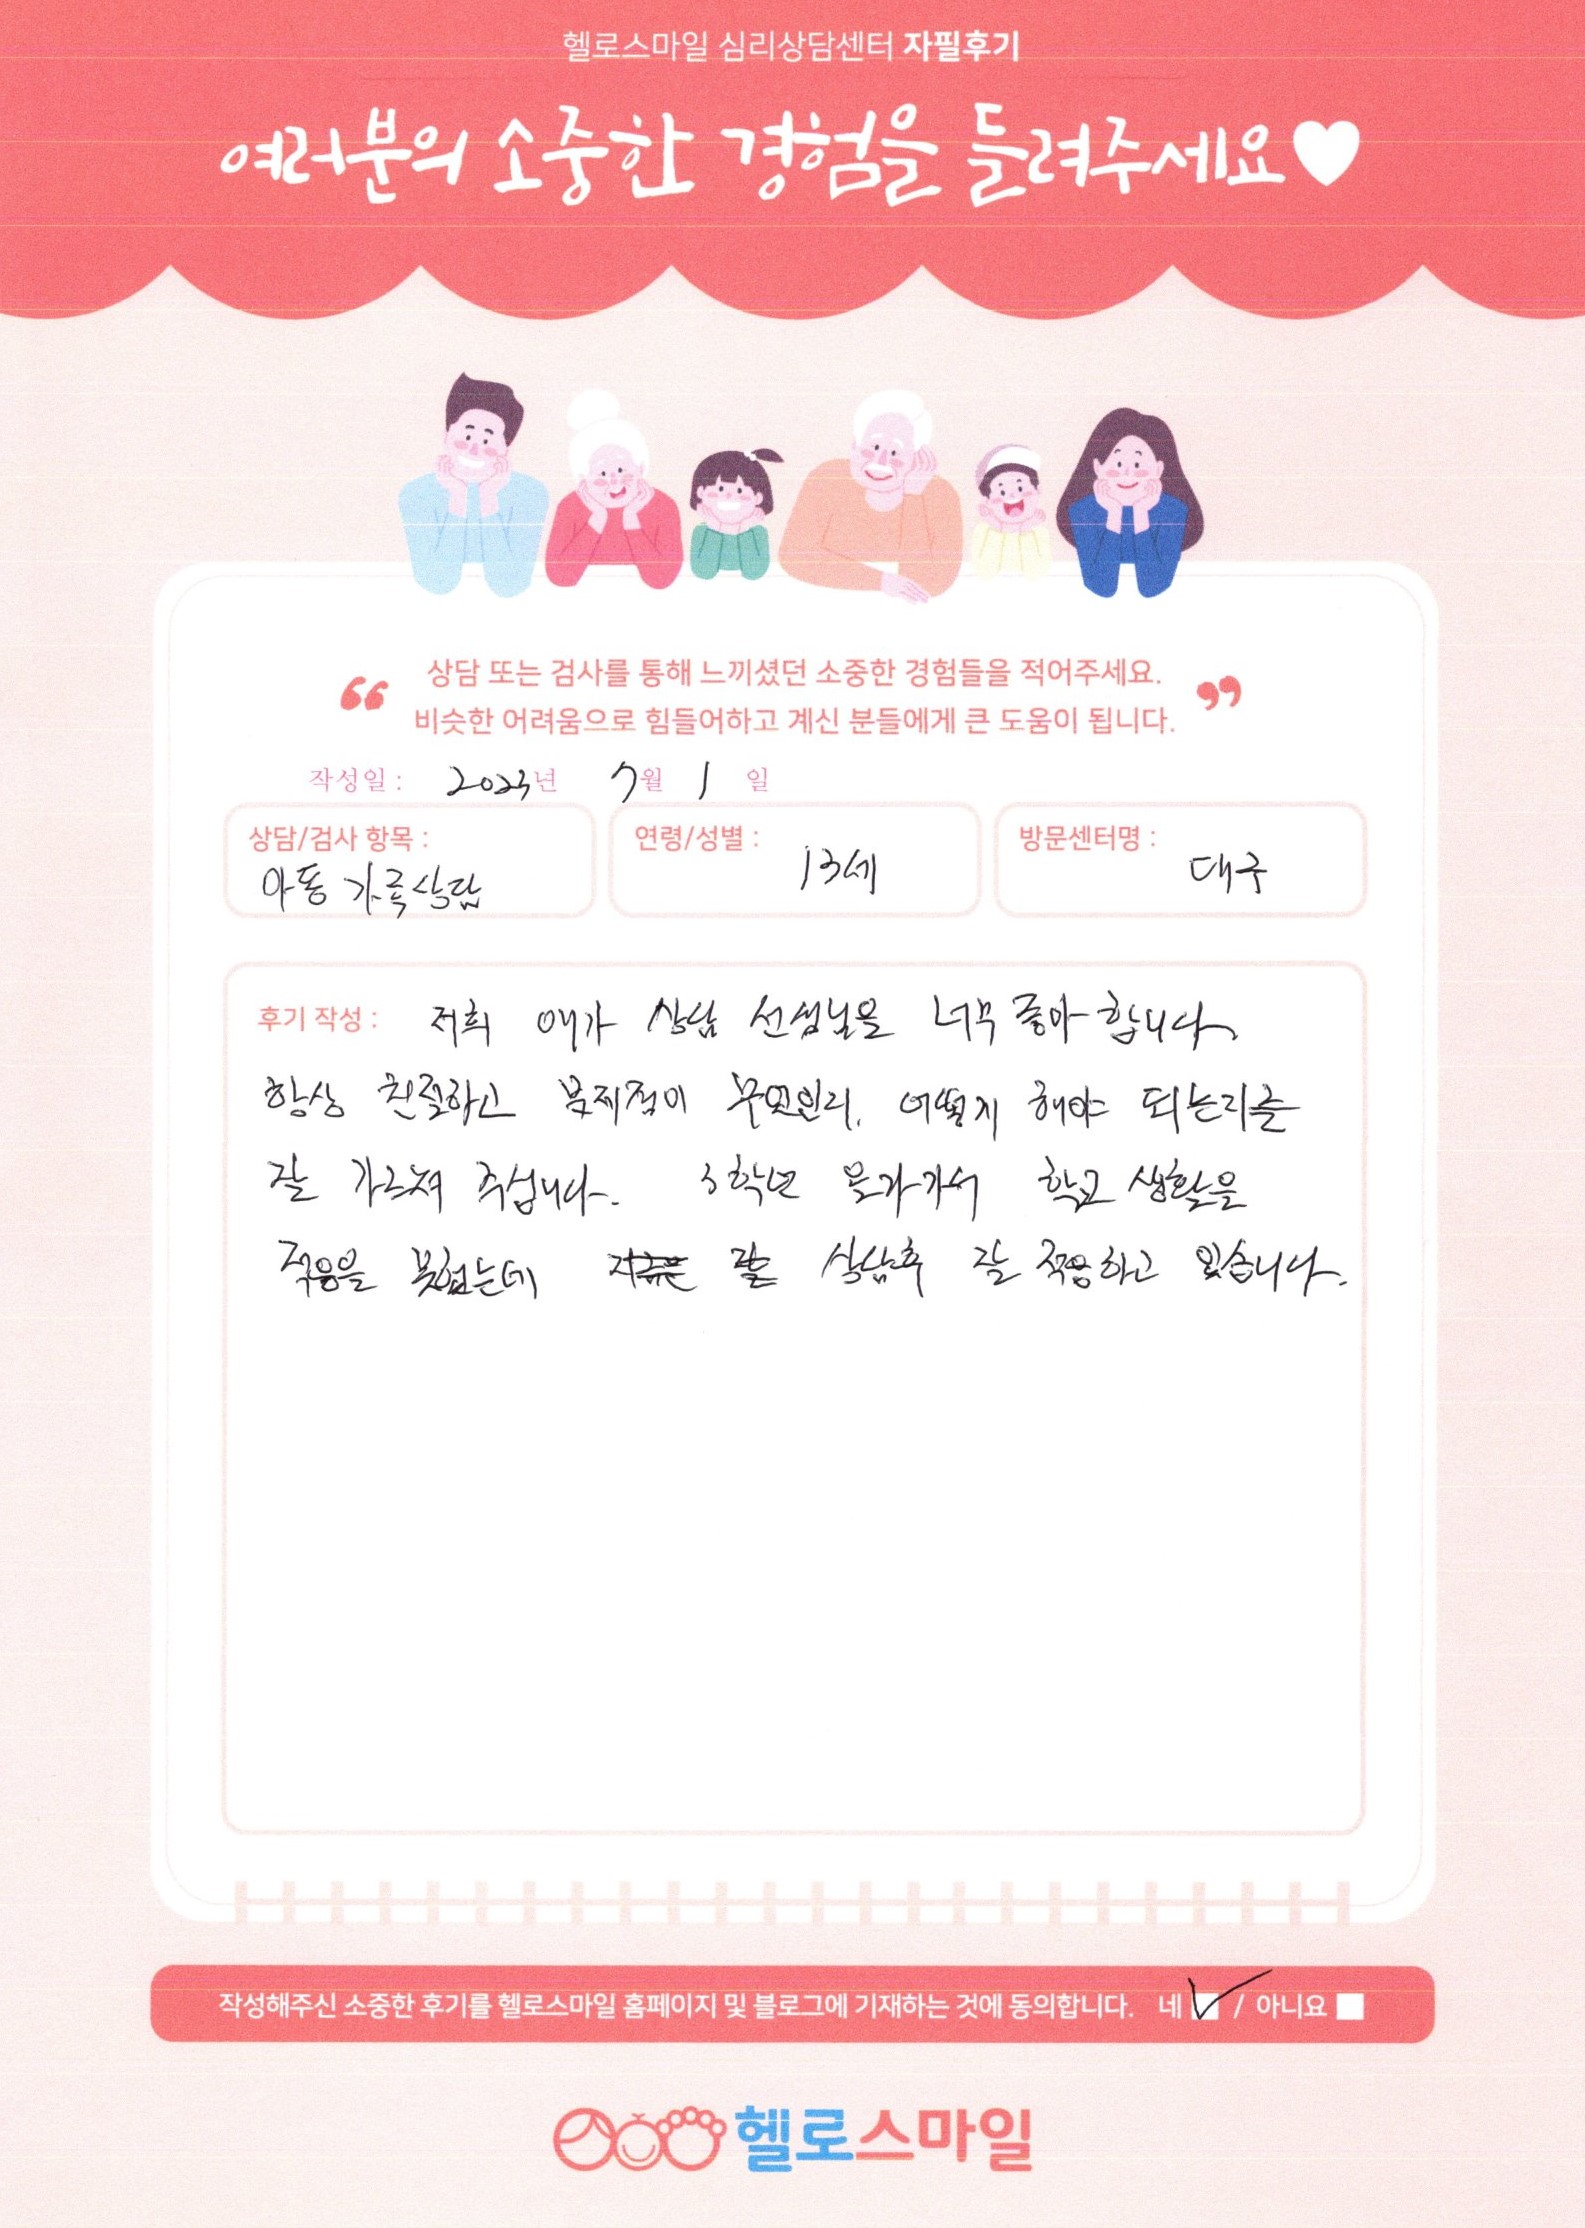 헬로스마일 심리상담센터 자필후기
여러분의 소중한 경험을 들려주세요
상담 또는 검사를 통해 느끼셨던 소중한 경험들을 적어주세요.
비슷한 어려움으로 힘들어하고 계신 분들에게 큰 도움이 됩니다.
작성일 : 2023년 7월 1일
상담/검사 항목 : 연령/성별 : 방문센터명 :
아동 가족상담 13세 대구
후기 작성 : 저희 애가 상담 선생님을 너무 좋아 합니다.
항상 친절하고 문제점이 무엇인지, 어떻게 해야 되는지를
잘 가르쳐 주십니다. 3학년 올라가서 학교 생활을
적응을 못했는데 상담후 잘 적응하고 있습니다.
작성해주신 소중한 후기를 헬로스마일 홈페이지 및 블로그에 기재하는 것에 동의합니다. 네 / 아니요
헬로스마일